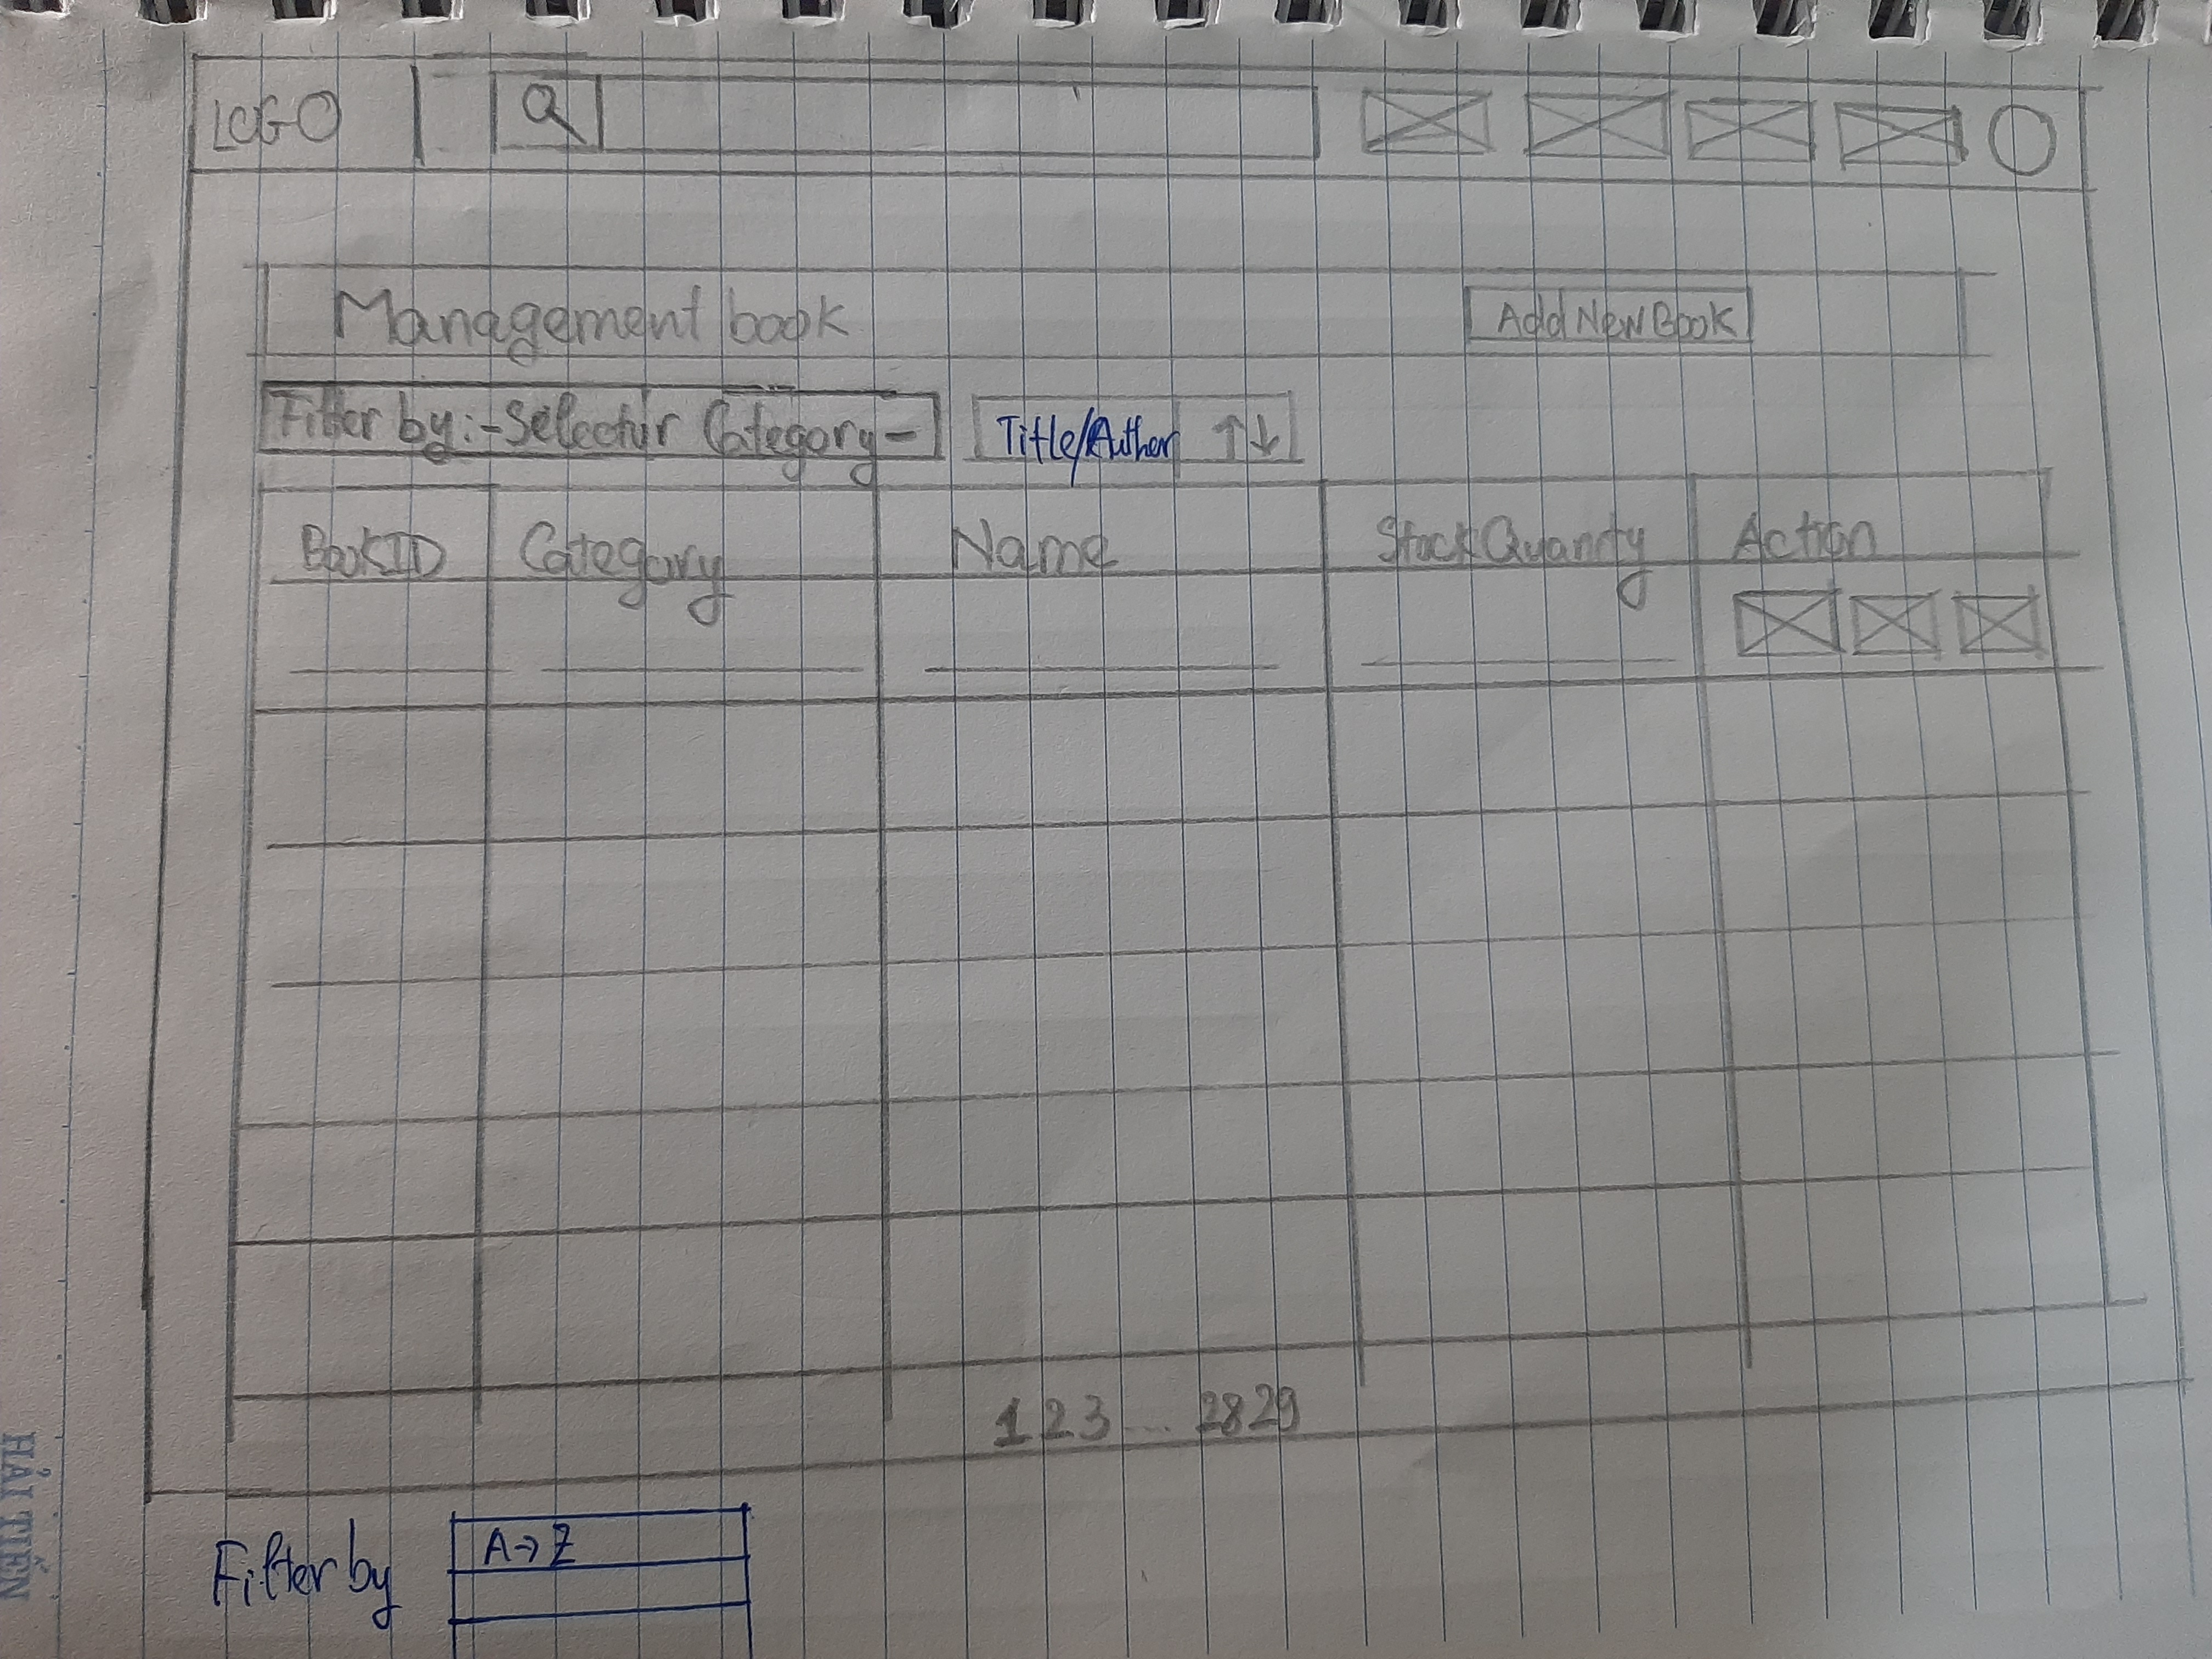 HẢI TIẾN
LOGO
Management book
Add New Book
Filter by:-Selectur Category-
Title/Author ↑↓
BookID Category Name StockQuanty Action
1 2 3 ... 28 29
Filter by
A→Z